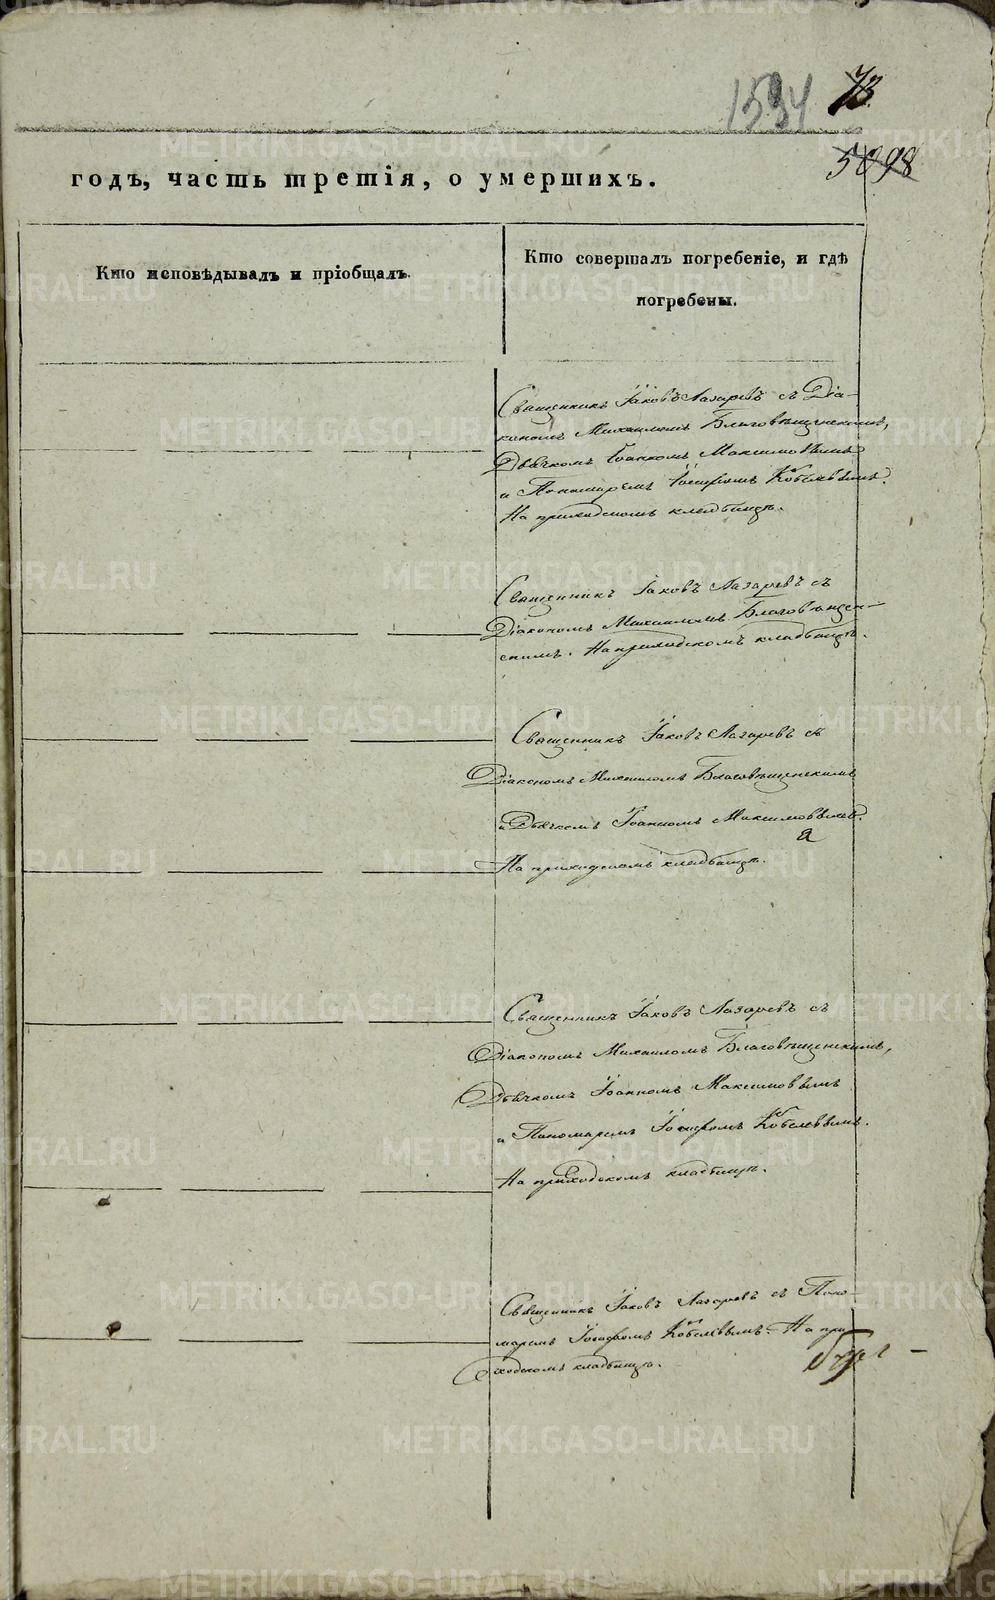 1594 73
5098
годъ, часть третія, о умершихъ.
Кто исповѣдывалъ и пріобщалъ.
Кто совершалъ погребеніе, и гдѣ
погребены.
Священникъ Іаковъ Лазаревъ съ Діа-
кономъ Михаиломъ Благовѣщенскимъ,
Дьячкомъ Іоанномъ Максимовымъ
и Пономаремъ Іосифомъ Кобелевымъ.
На приходскомъ кладбищѣ.
Священникъ Іаковъ Лазаревъ съ
Діакономъ Михаиломъ Благовѣщен-
скимъ. На приходскомъ кладбищѣ.
Священникъ Іаковъ Лазаревъ съ
Діакономъ Михаиломъ Благовѣщенскимъ
и Дьячкомъ Іоанномъ Максимовымъ.
На приходскомъ кладбищѣ.
Священникъ Іаковъ Лазаревъ съ
Діакономъ Михаиломъ Благовѣщенскимъ,
Дьячкомъ Іоанномъ Максимовымъ
и Пономаремъ Іосифомъ Кобелевымъ.
На приходскомъ кладбищѣ.
Священникъ Іаковъ Лазаревъ съ Поно-
маремъ Іосифомъ Кобелевымъ. На при-
ходскомъ кладбищѣ.
METRIKI.GASO-URAL.RU